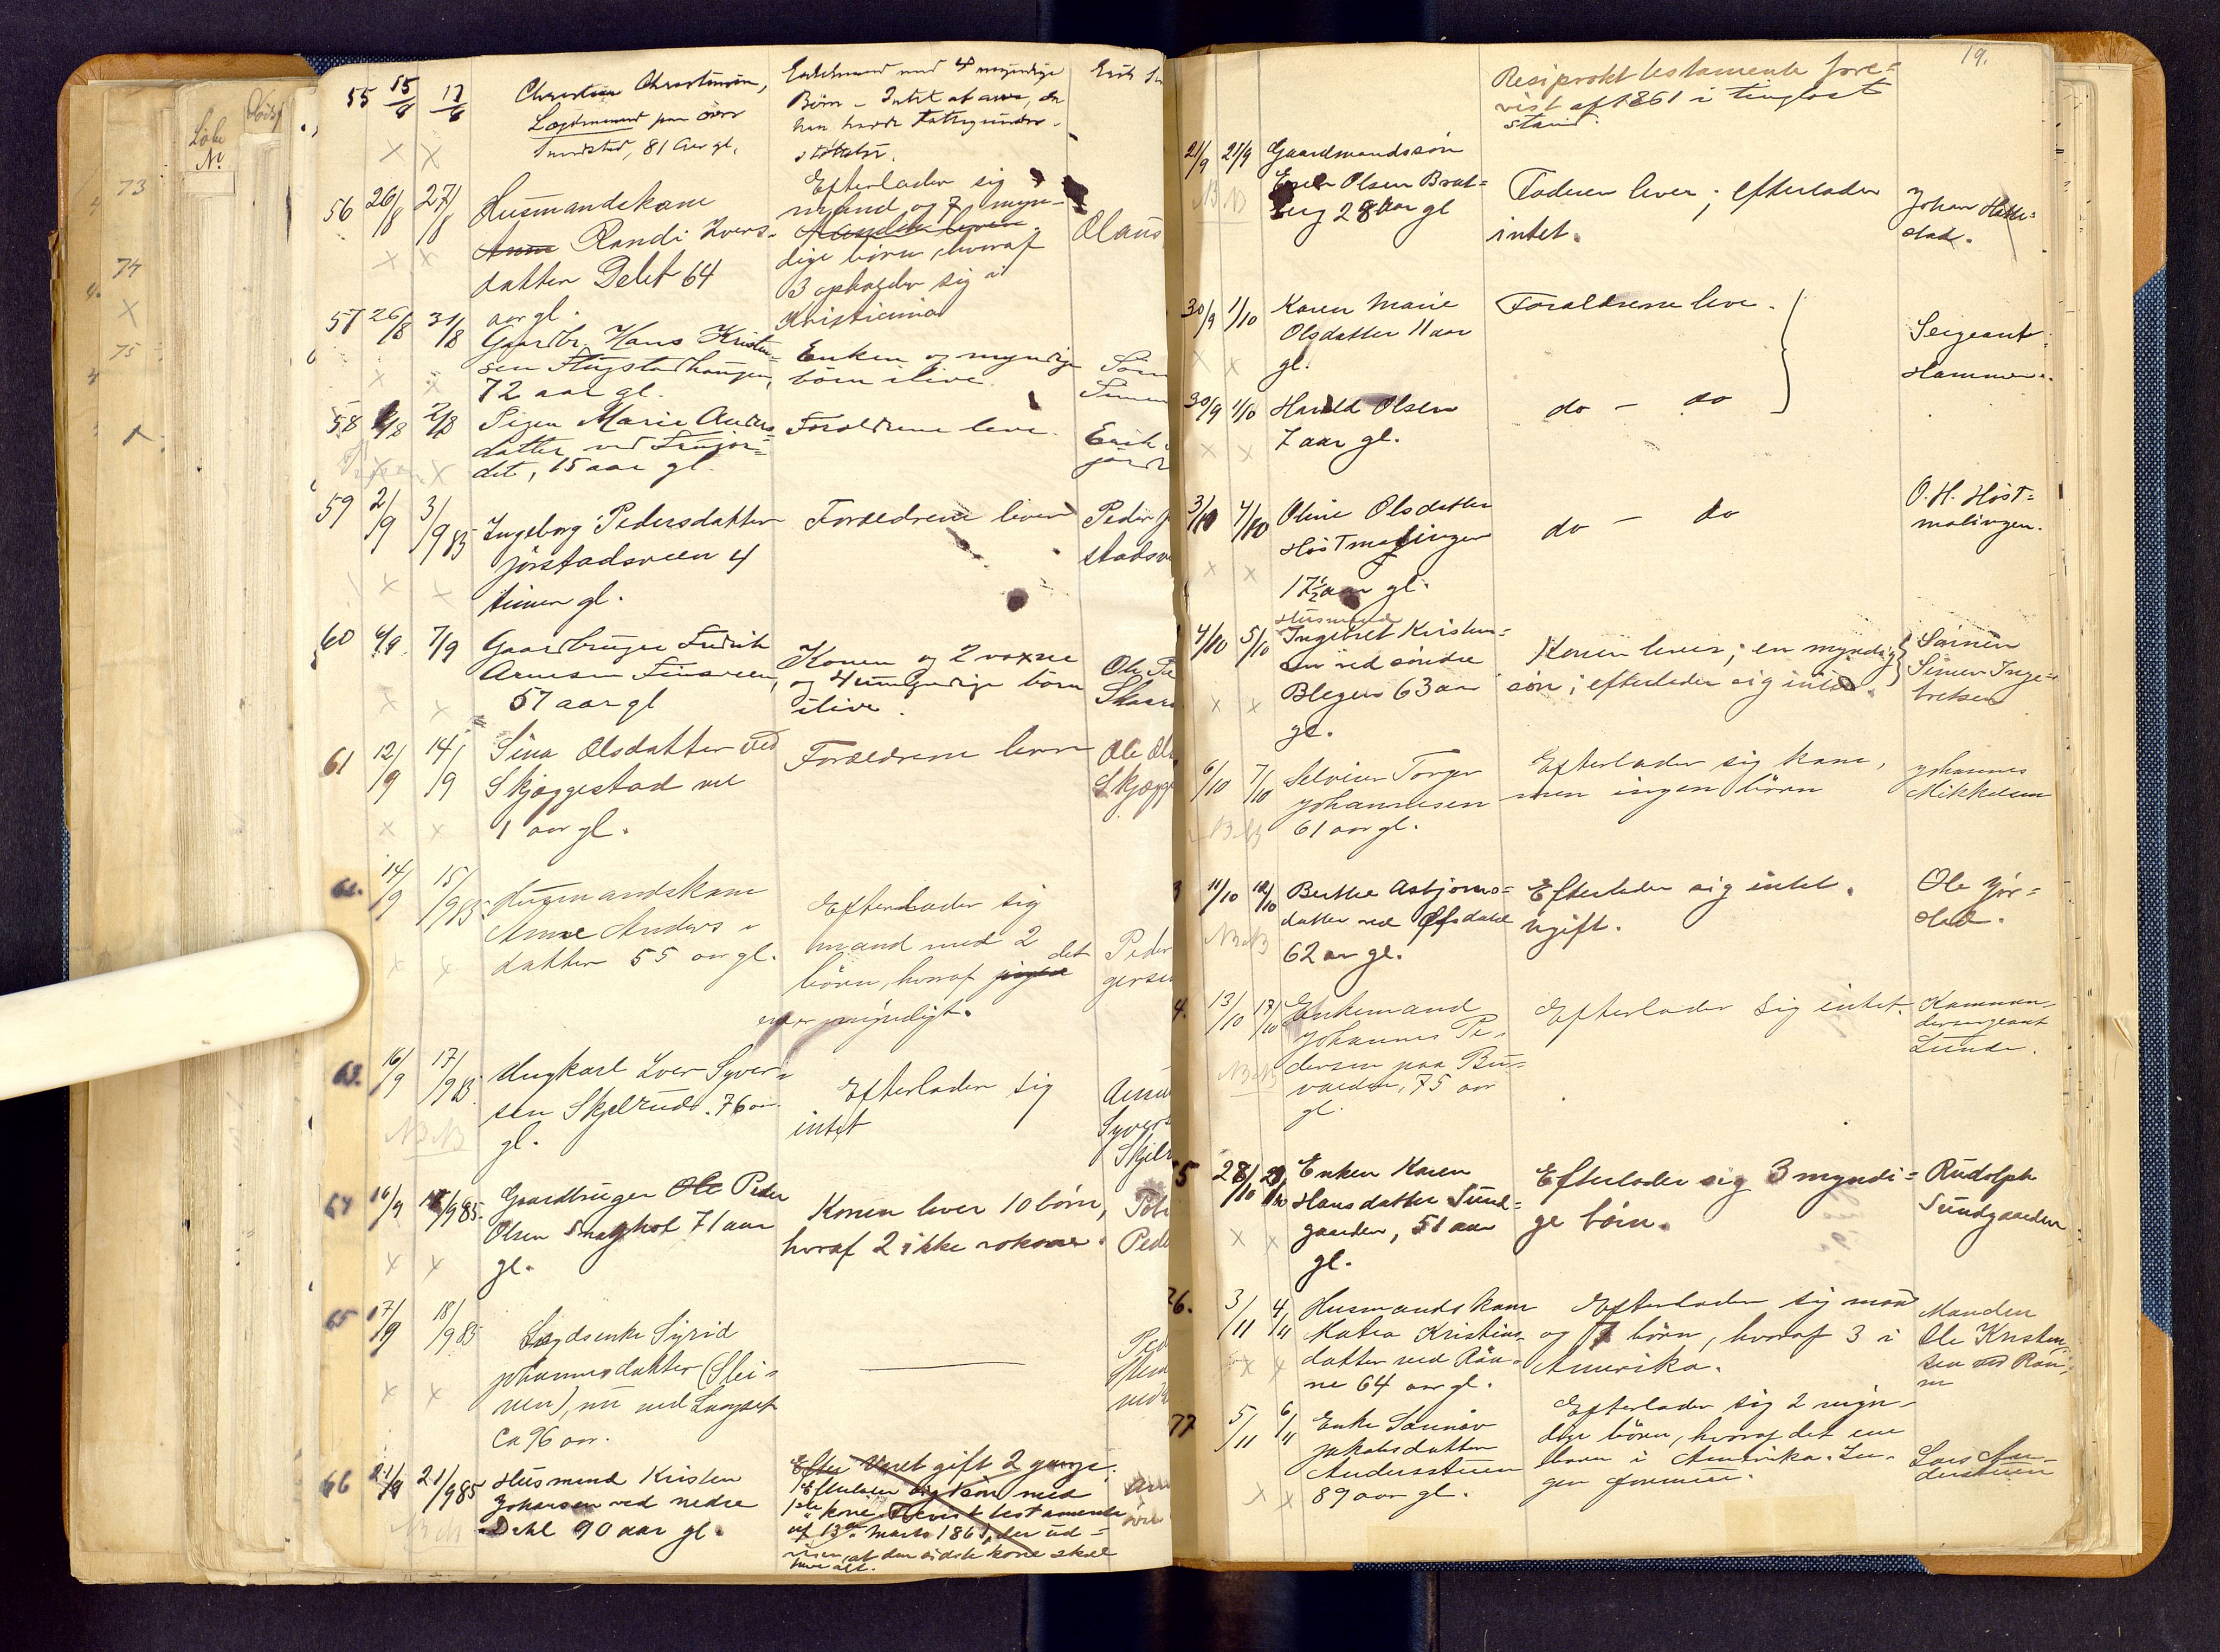 Löbe
No
73
74
75
55 15/8 17/8 Christian Christiansen,
Lægdsmand paa övre
81 Aar gl.
Enkemand med 4 myndige
Börn - Intet at arve, da
han havde Fattigunder-
støttelse.
56 26/8 27/8 Husmandskone
Anne Randi Ivers-
datter Delet 64
aar gl.
Efterlader sig
mand og 7 myn-
Manden lever
dige börn, hvoraf
3 opholder sig i
Kristiania
Olaus
57 26/8 31/8 Gaardbr. Hans Kristen-
sen Flugstadhaugen,
72 aar gl.
Enken og myndige
börn ilive.
Simen
58 2/8 Pigen Marie Anders
datter ved
det, 15 aar gl.
Forældrene leve.
Erik
59 2/9 3/9 85 Ingeborg Pedersdatter
Jörstadsveen 4
timer gl.
Forældrene lever
Peder
stadsv
60 6/9 7/9 Gaardbruger Fredrik
Arnesen Finsveen,
57 aar gl
Konen og 2 voxne
og 4 umyndige börn
ilive.
Ole Pe
61 12/9 14/9 Sina Olsdatter ved
Skjæggestad
1 aar gl.
Forældrene lever
Ole Ol
Skjægge
62. 14/9 15/9 85 Husmandskone
Anne Anders-
datter 55 aar gl.
Efterlader sig
mand med 2
börn, hvoraf det
myndigt.
Peder
gersen
63. 16/9 17/9 85 Ungkarl Iver Syver-
sen Skjelrud. 76 aar
gl.
Efterlader sig
intet
Syvers
Skjelr
64 16/9 /9 85. Gaardbruger Ole Peder
Olsen 71 aar
gl.
Konen lever 10 börn,
hvoraf 2 ikke voksne.
Pede
65 17/9 18/9 85 Lægdsenke Sigrid
Johannesdatter (Slei-
ven), nu ved
Ca 96 aar.
66 21/9 21/9 85 Husmand Kristen
Johansen ved nedre
Dahl 90 aar gl.
Efter Været gift 2 gange.
Efterlader sig sön med
1ste kone. Forevist testamente
af 13de Marts 1861, der ud-
viser, at den sidste kone skal
have alt.
19.
Resiprokt testamente fore-
vist af 1861 i tinglæst
stand.
21/9 21/9 Gaardmandssön
Olsen Brat-
berg 28 aar gl
Faderen lever; efterlader
intet.
Johan
stad.
30/9 1/10 Karen Marie
Olsdatter 11 aar
gl.
Forældrene leve.
Sergeant
Hammer.
30/9 1/10 Harald Olsen
7 aar gl.
do - do
3/10 4/10 Oline Olsdatter
Höstmælingen
17½ aar gl.
do - do
O. H. Höst-
mælingen.
4/10 5/10 Husmand
Ingebret Kristen-
sen ved söndre
Blegen 63 aar
gl.
Konen lever; en myndig
sön; efterlader sig intet.
Sönnen
Simen Inge-
bretsen
6/10 7/10 Selveier Torger
Johannesen
61 aar gl.
Efterlader sig kone,
men ingen börn
Johannes
Mikkelsen
11/10 12/10 Berthe Asbjørns-
datter ved Ofsdahl
62 aar gl.
Efterlader sig intet.
Ugift.
Ole Jör-
stad.
4. 13/10 17/10 Enkemand
Johannes Pe-
dersen paa Bu-
75 aar
gl.
Efterlader sig intet.
Komman-
dersergeant
Lunde.
5 28/10 29/10 Enken Karen
Hansdatter Sund-
gaarden, 51 aar
gl.
Efterlader sig 3 myndi-
ge börn.
Rudolph
Sundgaarden
76. 3/11 4/11 Husmandskone
Katea Kristians-
datter ved Rön-
ne 64 aar gl.
Efterlader sig mand
og 7 börn, hvoraf 3 i
Amerika.
Manden
Ole Kristen-
sen ved Rön-
ne
77 5/11 6/11 Enke
Jakobsdatter
Andersstuen
89 aar gl.
Efterlader sig 2 myn-
dige börn, hvoraf det ene
barn i Amerika. In-
gen formue.
Lars An-
dersstuen